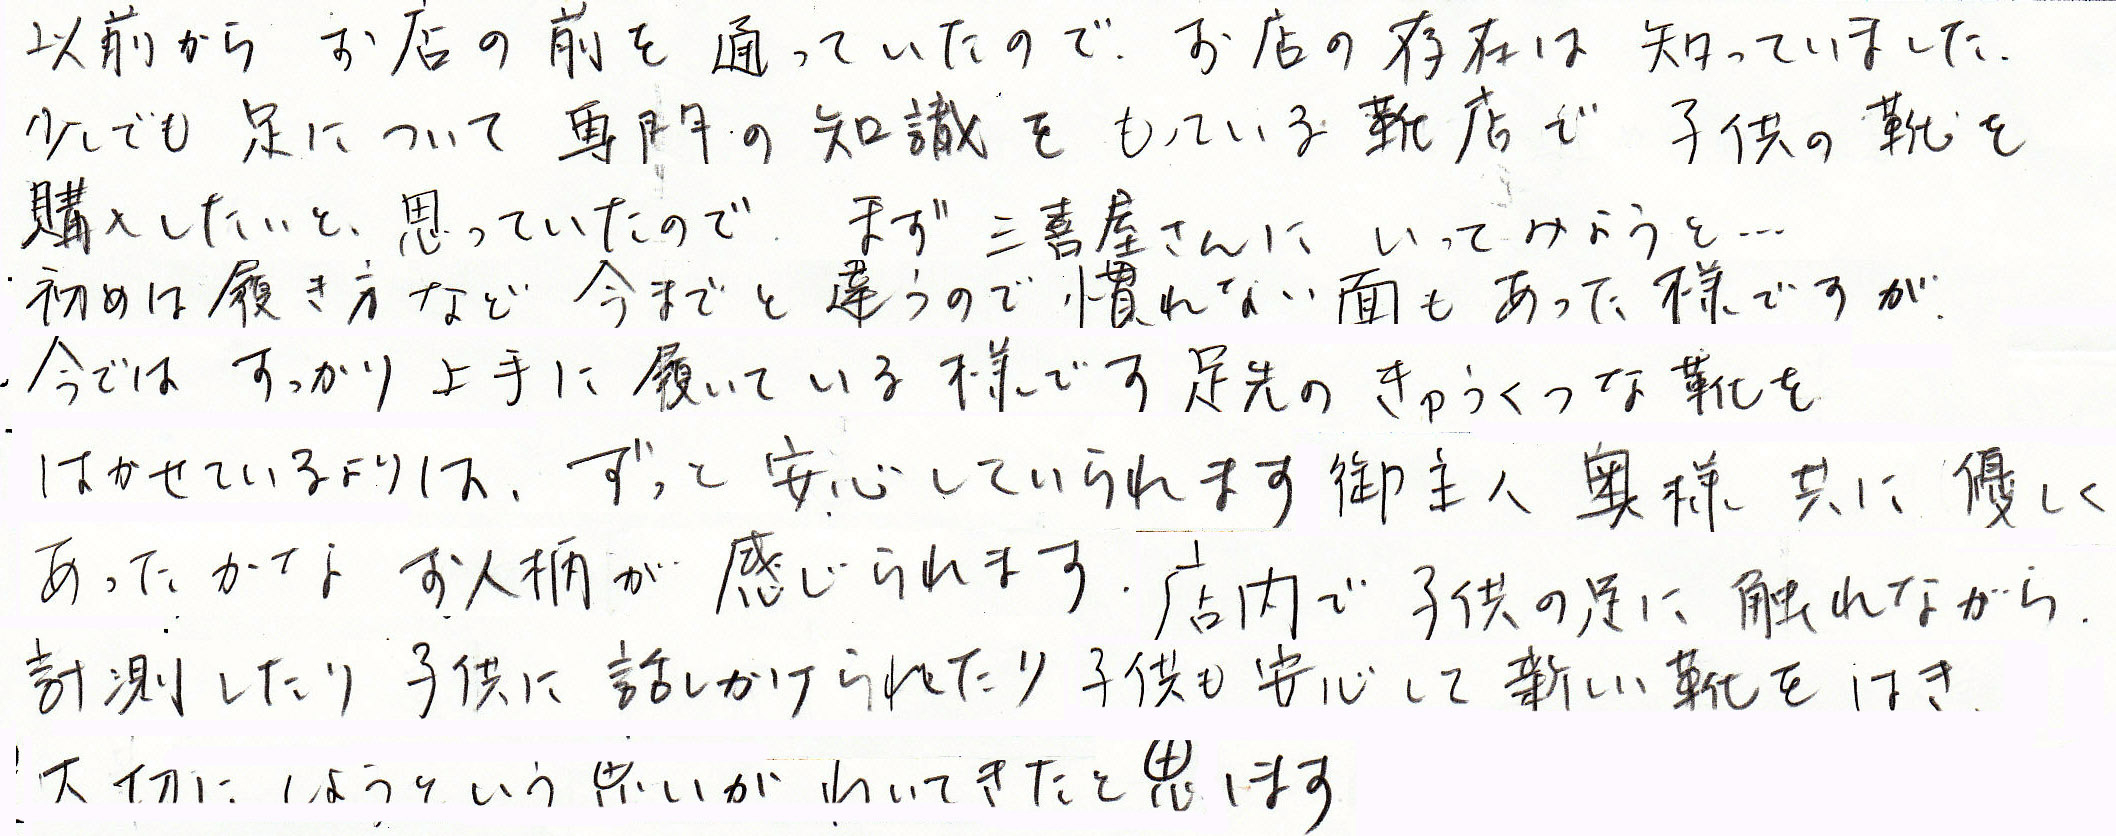 以前から お店の前を 通っていたので、お店の存在は 知っていました。
少しでも 足に ついて 専門の 知識を もっている 靴店で 子供の 靴を
購入したいと、思っていたので、まず 三喜屋さんに いってみようと…
初めは 履き方など 今までと 違うので 慣れない面も あった 様ですが、
今では すっかり 上手に 履いている 様です 足先の きゅうくつな 靴を
はかせているよりは、ずっと 安心していられます 御主人 奥様 共に 優しく
あったかな お人柄が 感じられます。店内で 子供の足に 触れながら、
計測したり 子供に 話しかけられたり 子供も 安心して 新しい 靴を はき、
大切に しようという 思いが わいてきたと 思います